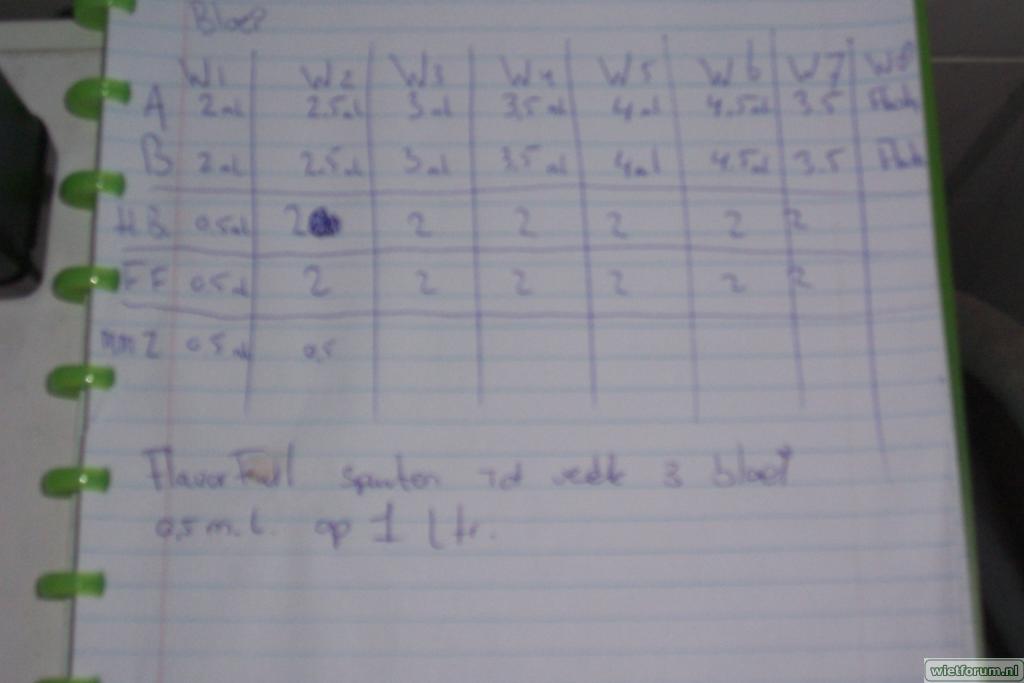 Bloei
W1 W2 W3 W4 W5 W6 W7 W8
A 2ml 2.5ml 3ml 3,5ml 4ml 4.5ml 3.5 Flush
B 2ml 2.5ml 3ml 3.5ml 4ml 4.5ml 3.5 Flush
HB 0,5ml 2 2 2 2 2 2
FF 0.5ml 2 2 2 2 2 2
0.5ml 0,5
FlavorFuel spuiten tot week 3 bloei
0,5 m.l. op 1 ltr.
wietforum.nl